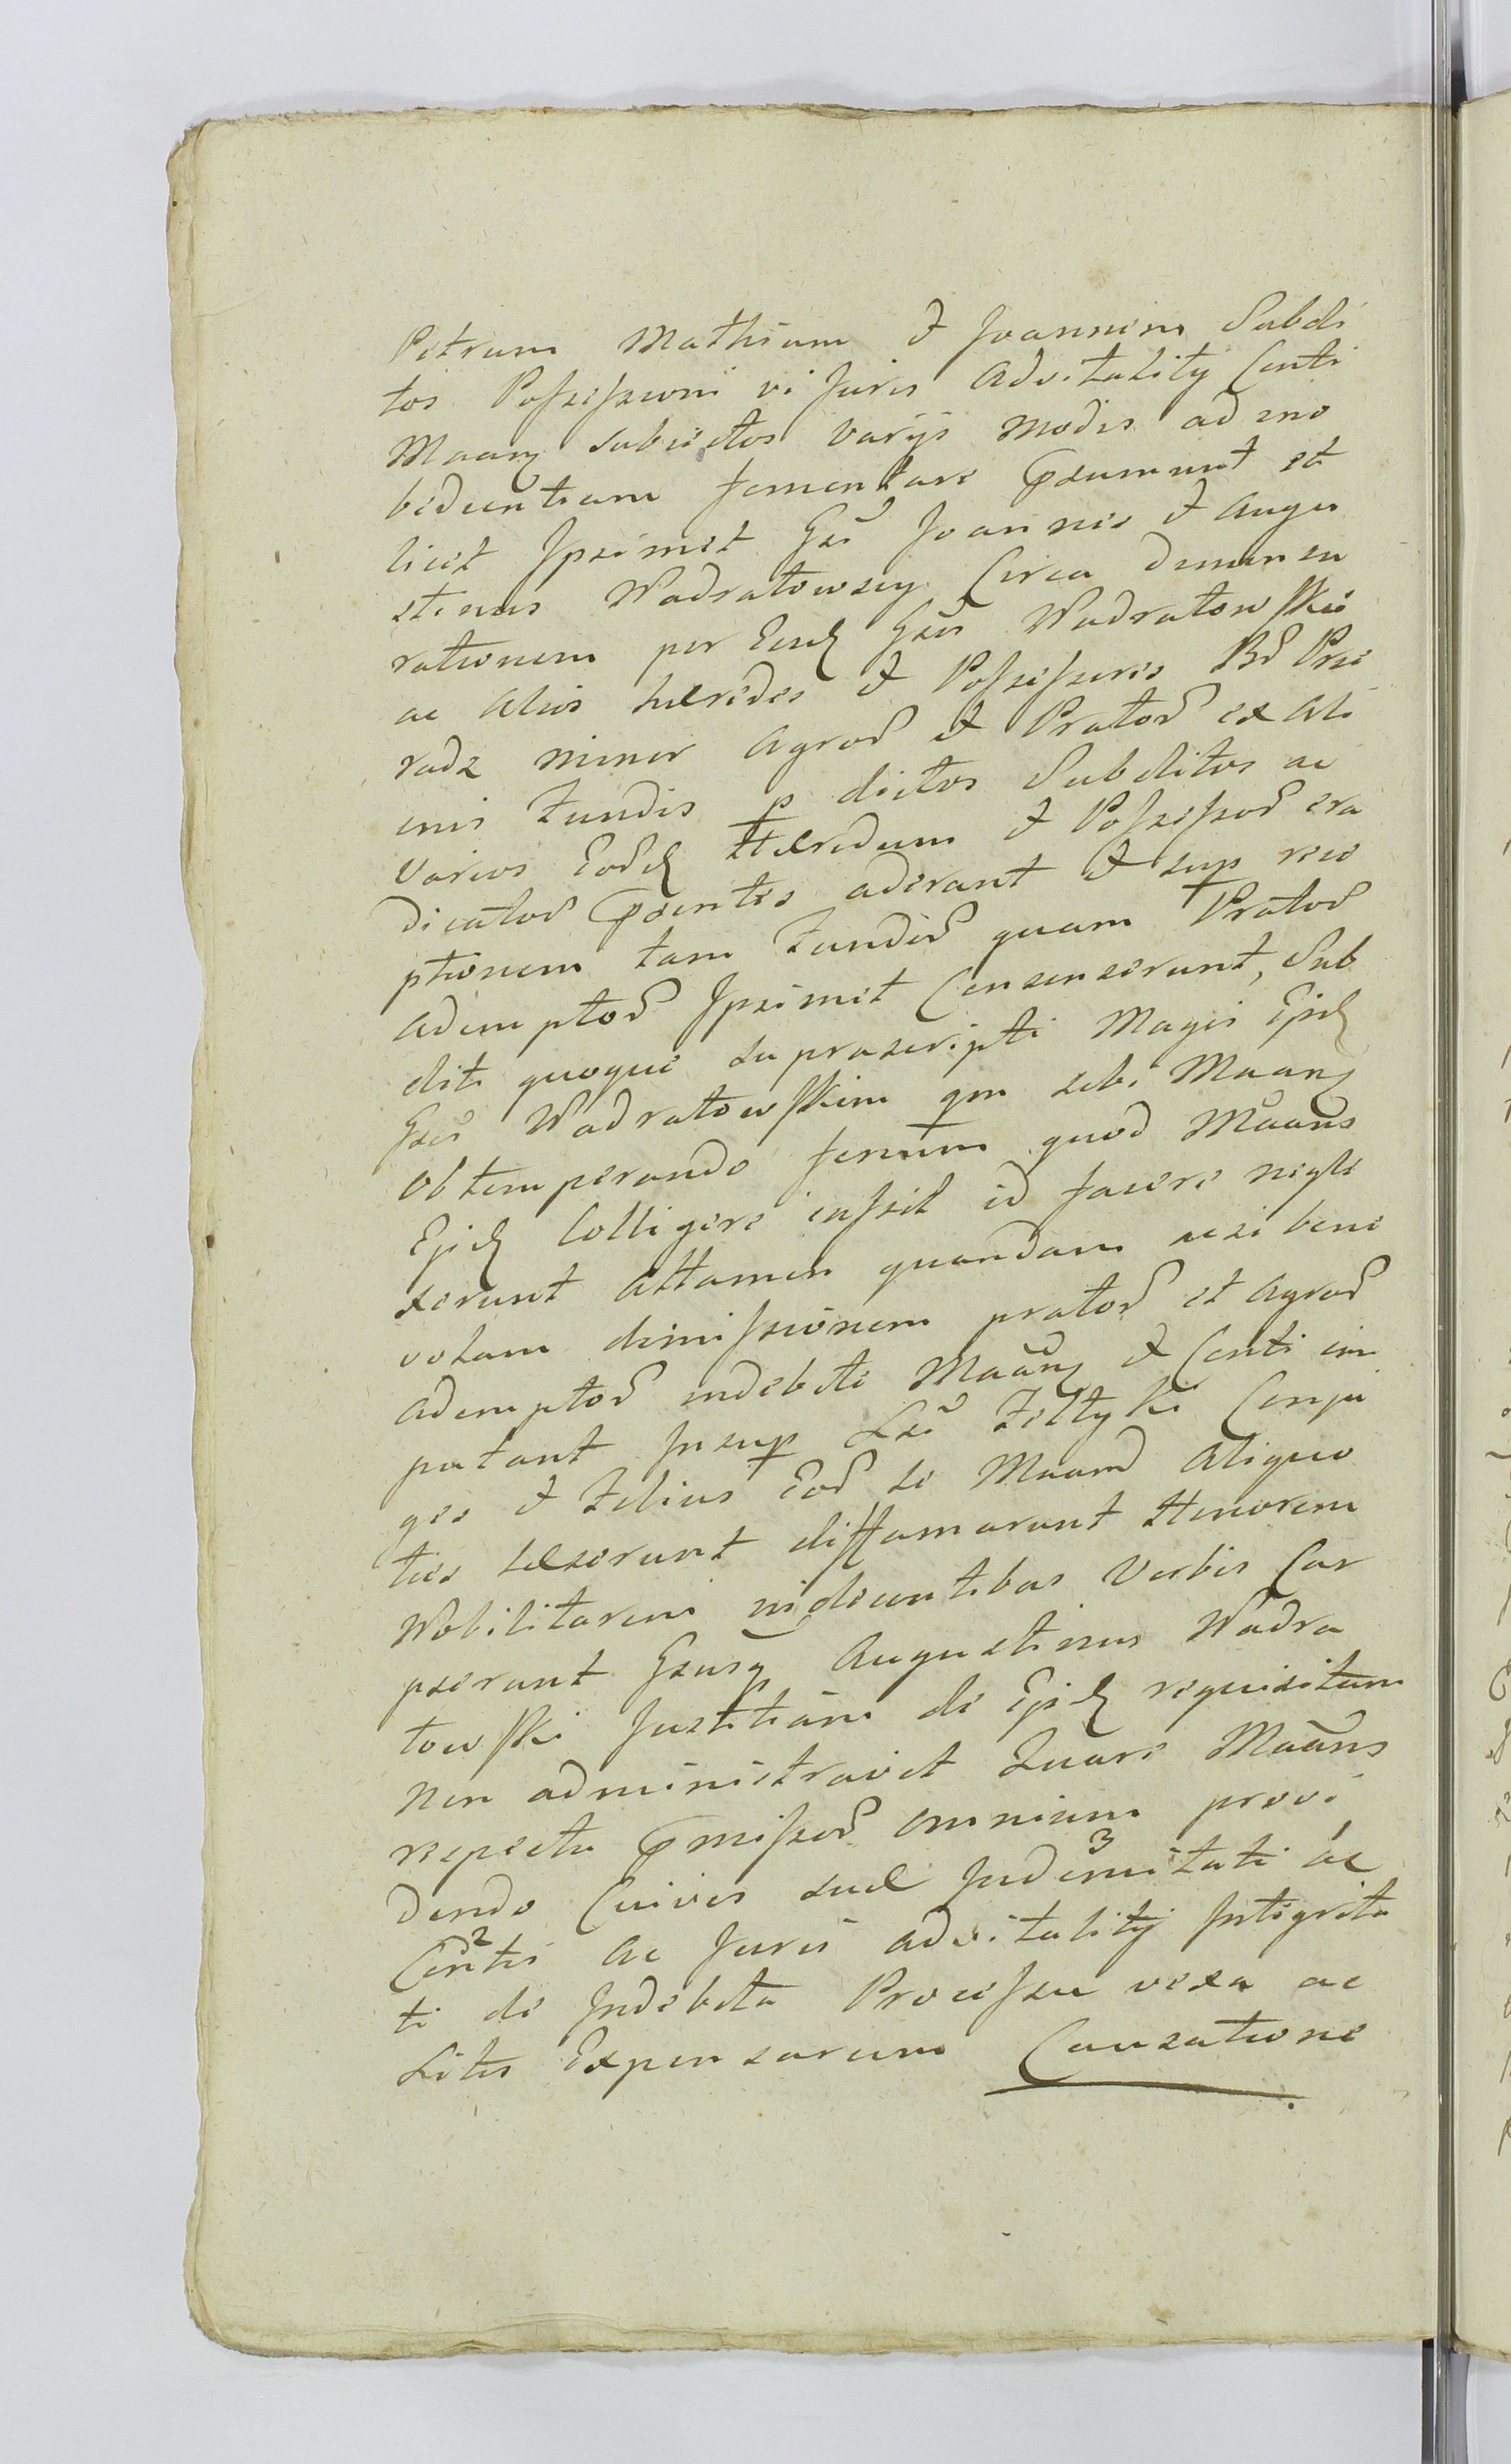 Petrum Mathiam et Joannem Subdi
tos Possessioni vi Juris Advitality Conti
Maanz subiectos varijs modis ad ino
bedientiam fomentare Psumunt et
licet Ipsimet Gsi Joannes et Augu
stinus Wadratowscy Circa dimensu
rationem per Eosd Gsos Wadratowskie
ac alios hæredes et Possessores Bd Prze
radz minor Agrod et Pratod ex ali
enis Fundis p dictos Subditos ac
varios Eord Hæredum et Possessod era
dicatod Psentes aderant et sup rece
ptionem tam Fundid quam Pratod
ademptod Ipsimet Consenserunt, Sub
diti quoque supra scripti Magis Ejsd
Gso Wadratowskim qm sibi Maanz
obtemperando fenum quod Maans
Ejsd Colligere iussit id facere negle
xerunt attamen quandam acsi bene
volam dimissionem pratod et Agrod
ademptod indebite Maanz et Conti im
putant Insup Gsi Filtyki Conju
ges et Filius Eod se Maand aliquo
ties læserunt diffamarunt Honorem
Nobilitarem indecentibus Verbis Car
pserunt Gsusq Augustinus Wadra
towski Justitiam de Ejsd requisitam
non administravit Quare Maans
respectu Pmissod omnium provi
dendo Cuivis suæ Indemnitati ac
Conti ac Juris advitalitij Integrita
ti de Indebita Processu vexa ac
Litis Expensarum Causatione